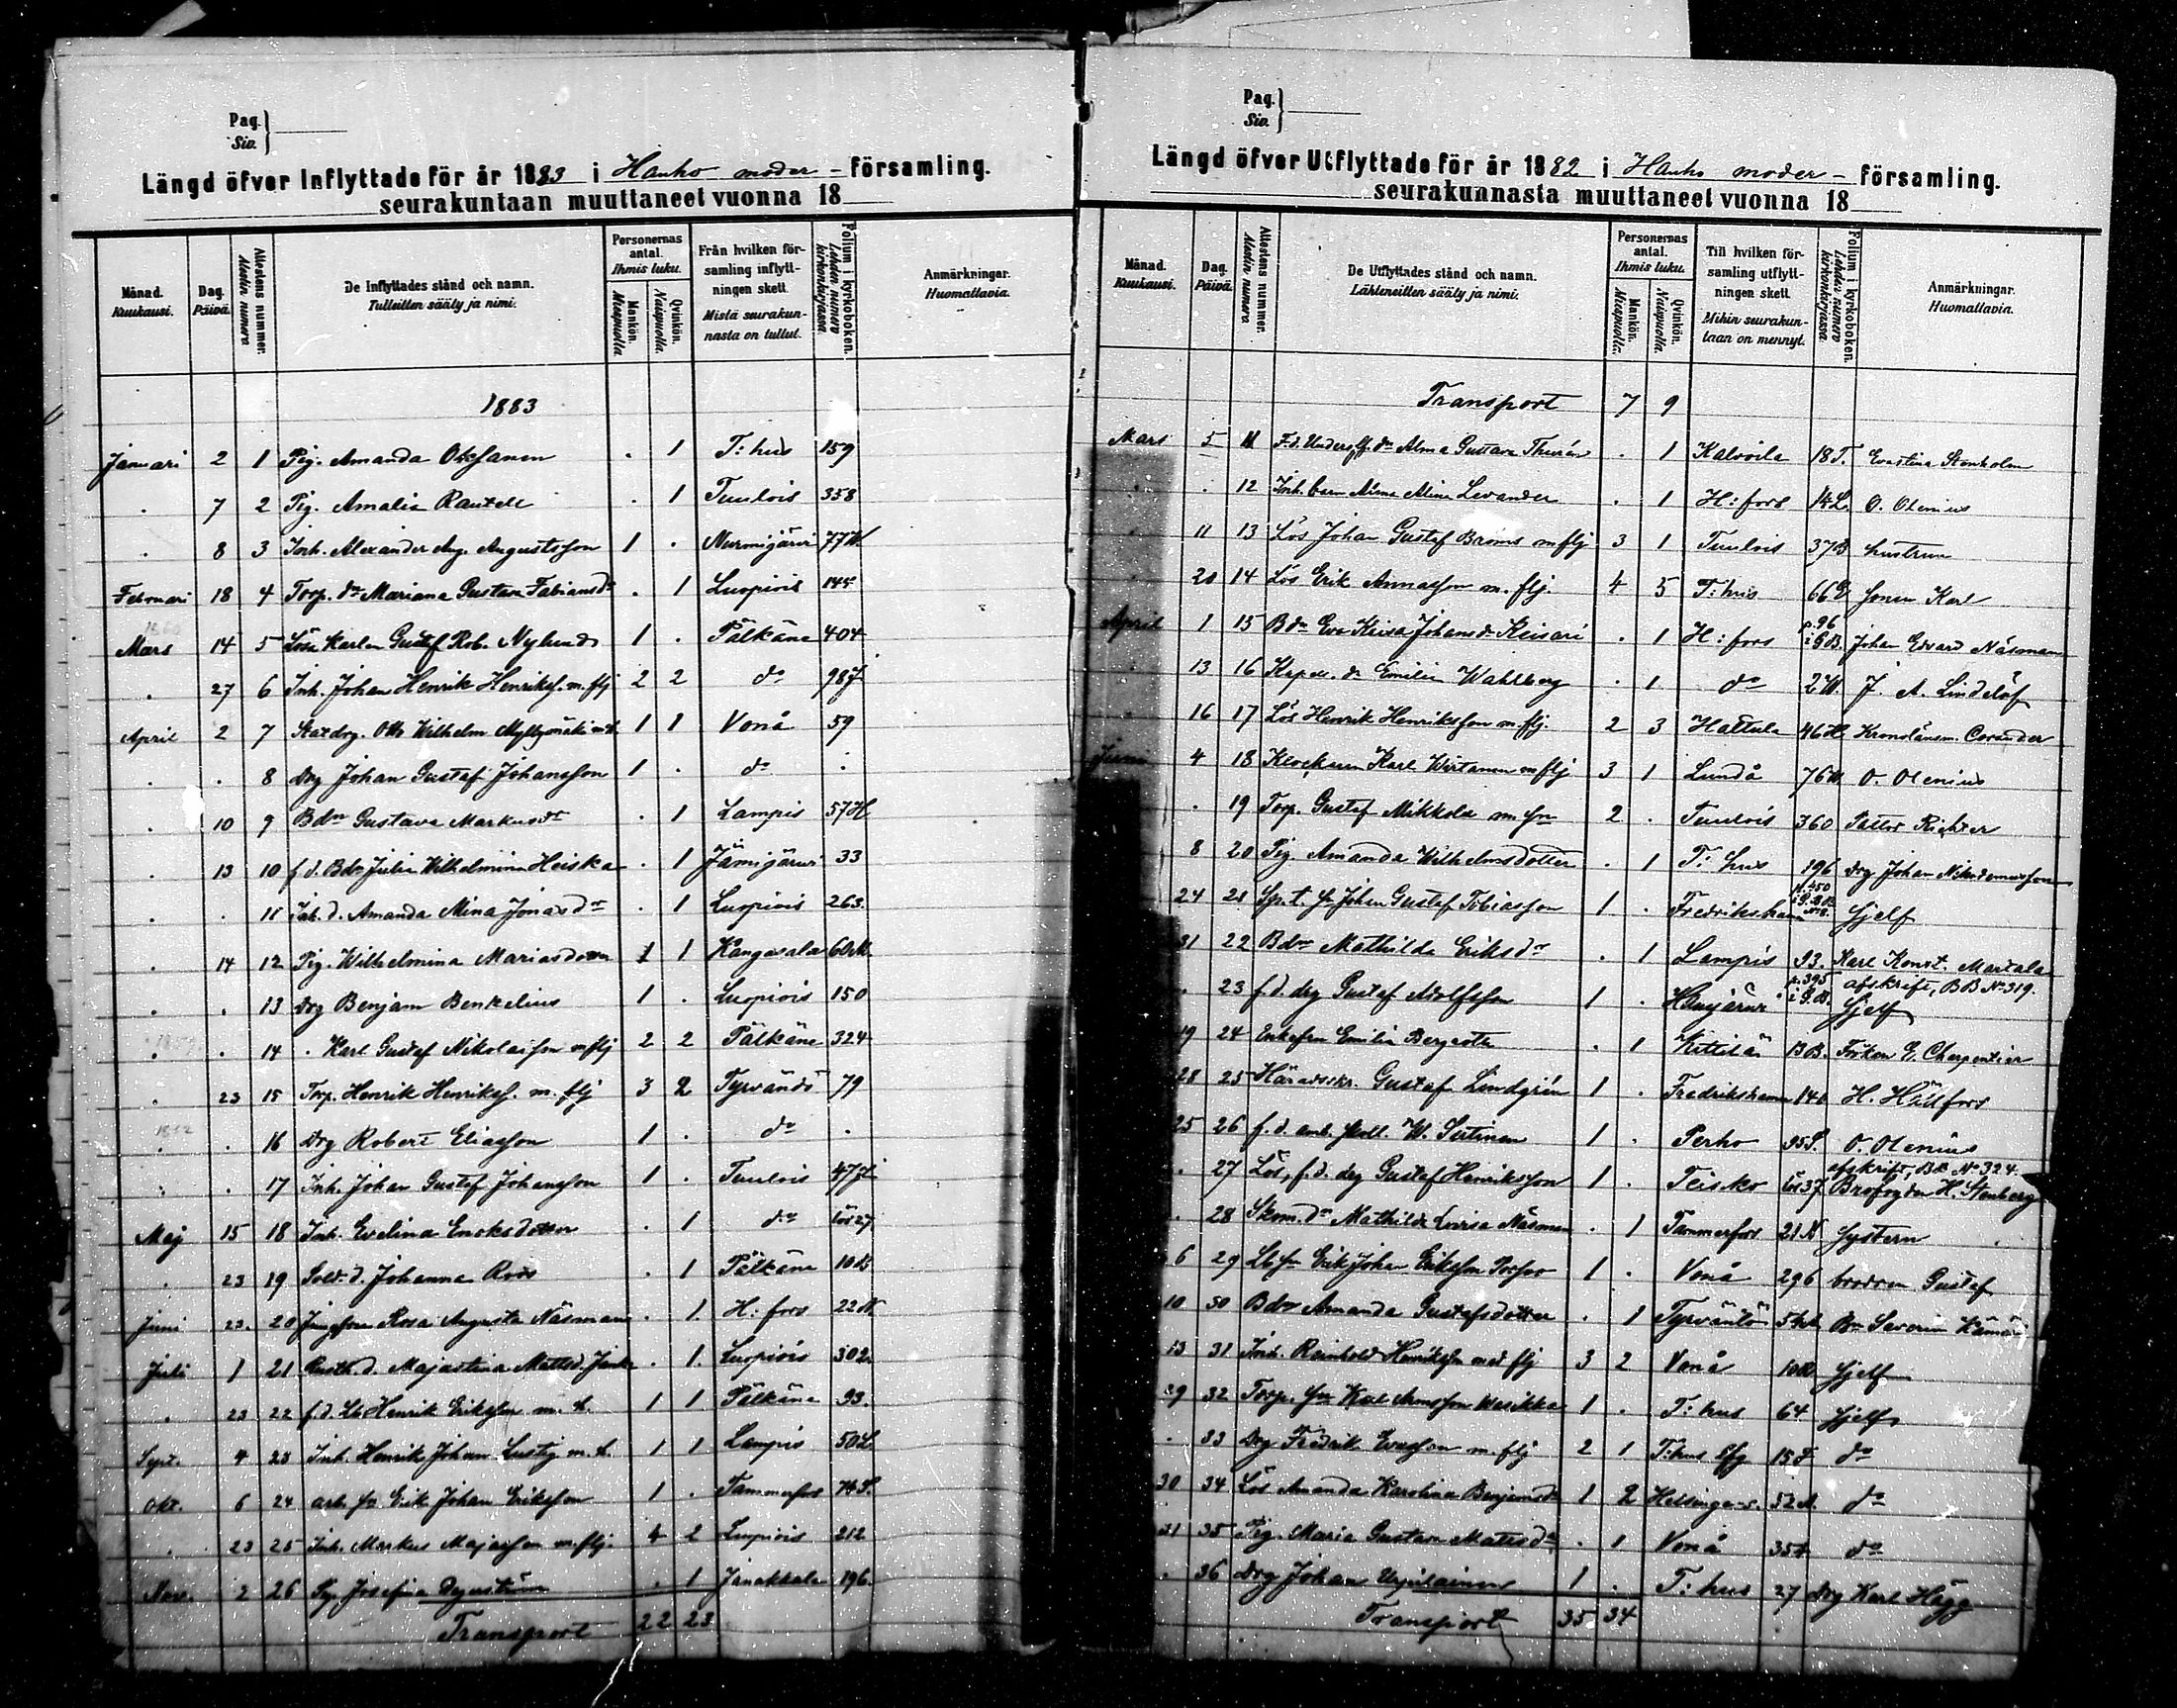 Pag.
Siv.
Längd öfver Inflyttade för år 1883 i Hauho moder - församling.
seurakuntaan muuttaneet vuonna 18
Månad. Kuukausi.
Dag. Päivä.
Allestens nummer. Alestin numero
De Inflyttades stånd och namn. Tulleitten sääty ja nimi.
Personernas antal. Ihmis luku.
Mankön. Miespuolia
Qvinkön. Naispuolia.
Från hvilken församling inflyttningen skett. Mistä seurakunnasta on tullut.
Folium i kyrkoboken. Lehden numero kirkonkirjassa
Anmärkningar. Huomattavia.
1883
Januari 2 1 Pig. Amanda Oksanen . 1 T:hus 159
. 7 2 Pig. Amalia Rautell . 1 Tuulois 358
. 8 3 Inh. Alexander Aug. Augustsson 1 . Nurmijärvi 77
Februari 18 4 Torp. dr Mariana Gustava Fabiansdr . 1 Luopiois 145
Mars 14 5 Lösa Karlen Gustaf Rob. Nylund 1 . Pälkäne 404
. 27 6 Inh. Johan Henrik Henrikss. m. flj 2 2 do 98 J
April 2 7 Statdrg. Otto Wilhelm Myllymäki m.h. 1 1 Vonå 59
. . 8 Drg Johan Gustaf Johansson 1 . do .
. 10 9 Bdr Gustava Markusdr . 1 Lampis 57 H
. 13 10 f.d. Bdr Julia Wilhelmina Heiska . 1 Jämijärvi 33
. . 11 Inh. d. Amanda Mina Jonasdr . 1 Luopiois 263
. 14 12 Pig. Wilhelmina Mariasdotter 1 1 Kangasala
. . 13 Drg Benjam Benkelius 1 . Luopiois 150
. . 14 . Karl Gustaf Nikolaisson m flj 2 2 Pälkäne 324
. 23 15 Torp. Henrik Henrikss. m. flj 3 2 Tyrvändö 79
. . 16 Drg Robert Eliasson 1 . do .
. . 17 Inh. Johan Gustaf Johansson 1 . Tuulois 47
Maj 15 18 Inh. Evelina Enoksdotter . 1 do lös 27
. 23 19 Sold. d. Johanna Roos . 1 Pälkäne 10
Juni 23 20 Jungfrun Rosa Augusta Näsman . 1 H:fors 22 N
Juli 1 21 Majastina Mattsd. . 1 Luopiois 302
. 23 22 f.d. Henrik Eriksson m. h. 1 1 Pälkäne 93
Sept. 4 23 Inh. Henrik Johan Lustig m. h. 1 1 Lampis 50 L
Okt. 6 24 arb. sn Erik Johan Eriksson 1 . Tammerfors
. 23 25 Inh. Markus Majasson m. flj. 4 2 Luopiois 212
Nov. 2 26 Pig. Josefina . 1 Janakkala 196
Transport 22 23
Pag.
Siv.
Längd öfver Utflyttade för år 1882 i Hauho moder - församling.
seurakunnasta muuttaneet vuonna 18
Månad. Kuukausi.
Dag. Päivä.
Allestens nummer. Alestin numero
De Utflyttades stånd och namn. Lähteneitten sääty ja nimi.
Personernas antal. Ihmis luku.
Mankön. Miespuolia.
Qvinkön. Naispuolia.
Till hvilken församling utflyttningen skett. Mihin seurakuntaan on mennyt.
Folium i kyrkoboken. Lehden numero kirkonkirjassa
Anmärkningar. Huomattavia.
Transport 7 9
Mars 5 11 Alma Gustava Thurén . 1 Kalvola 18 T. Evastina Stenholm
. 12 Inh. barn Alma Mina Levander . 1 H:fors 14 L. O. Olenius
11 13 Lös Johan Gustaf Broms m flj 3 1 Tuulois 37 B hustrun
20 14 Lös Erik Annasson m. flj. 4 5 T:hus 66 sonen Karl
April 1 15 Bdr Eva Kaisa Johansdr Keisari . 1 H:fors p. 96 i GB. Johan Edvard Näsman
13 16 Kapell. dr Emilia Wahlberg . 1 do 2 W. J. A. Lindelöf
16 17 Lös Henrik Henriksson m. flj. 2 3 Hattula 46 H Kronolänsm. Corander
Juni 4 18 Klockaren Karl Wirtanen m flj 3 1 Lundå 76 O. Olenius
. 19 Torp. Gustaf Mikkola m. sn 2 . Tuulois 360 Pastor Richter
8 20 Pig. Amanda Wilhelmsdotter . 1 T:hus 196 Drg Johan Nikodemusson
24 21 Johan Gustaf Tobiasson 1 . Fredrikshamn p. 450 sjelf
31 22 Bdr Mathilda Eriksdr . 1 Lampis 93. Karl Konst. Martala
. 23 f.d. drg Gustaf Adolfsson 1 . p. 395 i G.B. afskrift, BB No 319. sjelf
19 24 Enkefru Emilia . 1 Kittilä BB. Fröken E. Charpentier
28 25 Häradsskr. Gustaf Lindgrén 1 . Fredrikshamn 140 H. Hällfors
25 26 f.d. W. Sutinen 1 . Perho 95 S. O. Olenius
. 27 Lös, f.d. drg Gustaf Henriksson 1 . Teisko lös 37 afskrift, BB No 324. Brofogden H. Stenberg
. 28 Skom. dr Mathilda Lovisa Näsman . 1 Tammerfors 21 N systern
6 29 Erik Johan Eriksson 1 . Vonå 296 brodren Gustaf
10 30 Bdr Amanda Gustafsdotter . 1 Tyrväntö 54 Severin
13 31 Inh. Reinhold Henriksson med flj 3 2 Vonå sjelf
29 32 Torp. sn Karl Wesikka 1 . T:hus 64 sjelf
. 33 Drg Fredrik Evasson m. flj 2 1 T:hus 15 do
30 34 Lös Amanda Karolina Benjamsdr 1 2 Helsinge 52 do
31 35 Pig. Maria Gustava Matisdr . 1 Vonå 35 do
. 36 Drg Johan 1 . T:hus 27 Drg Karl Hägg
Transport 35 34